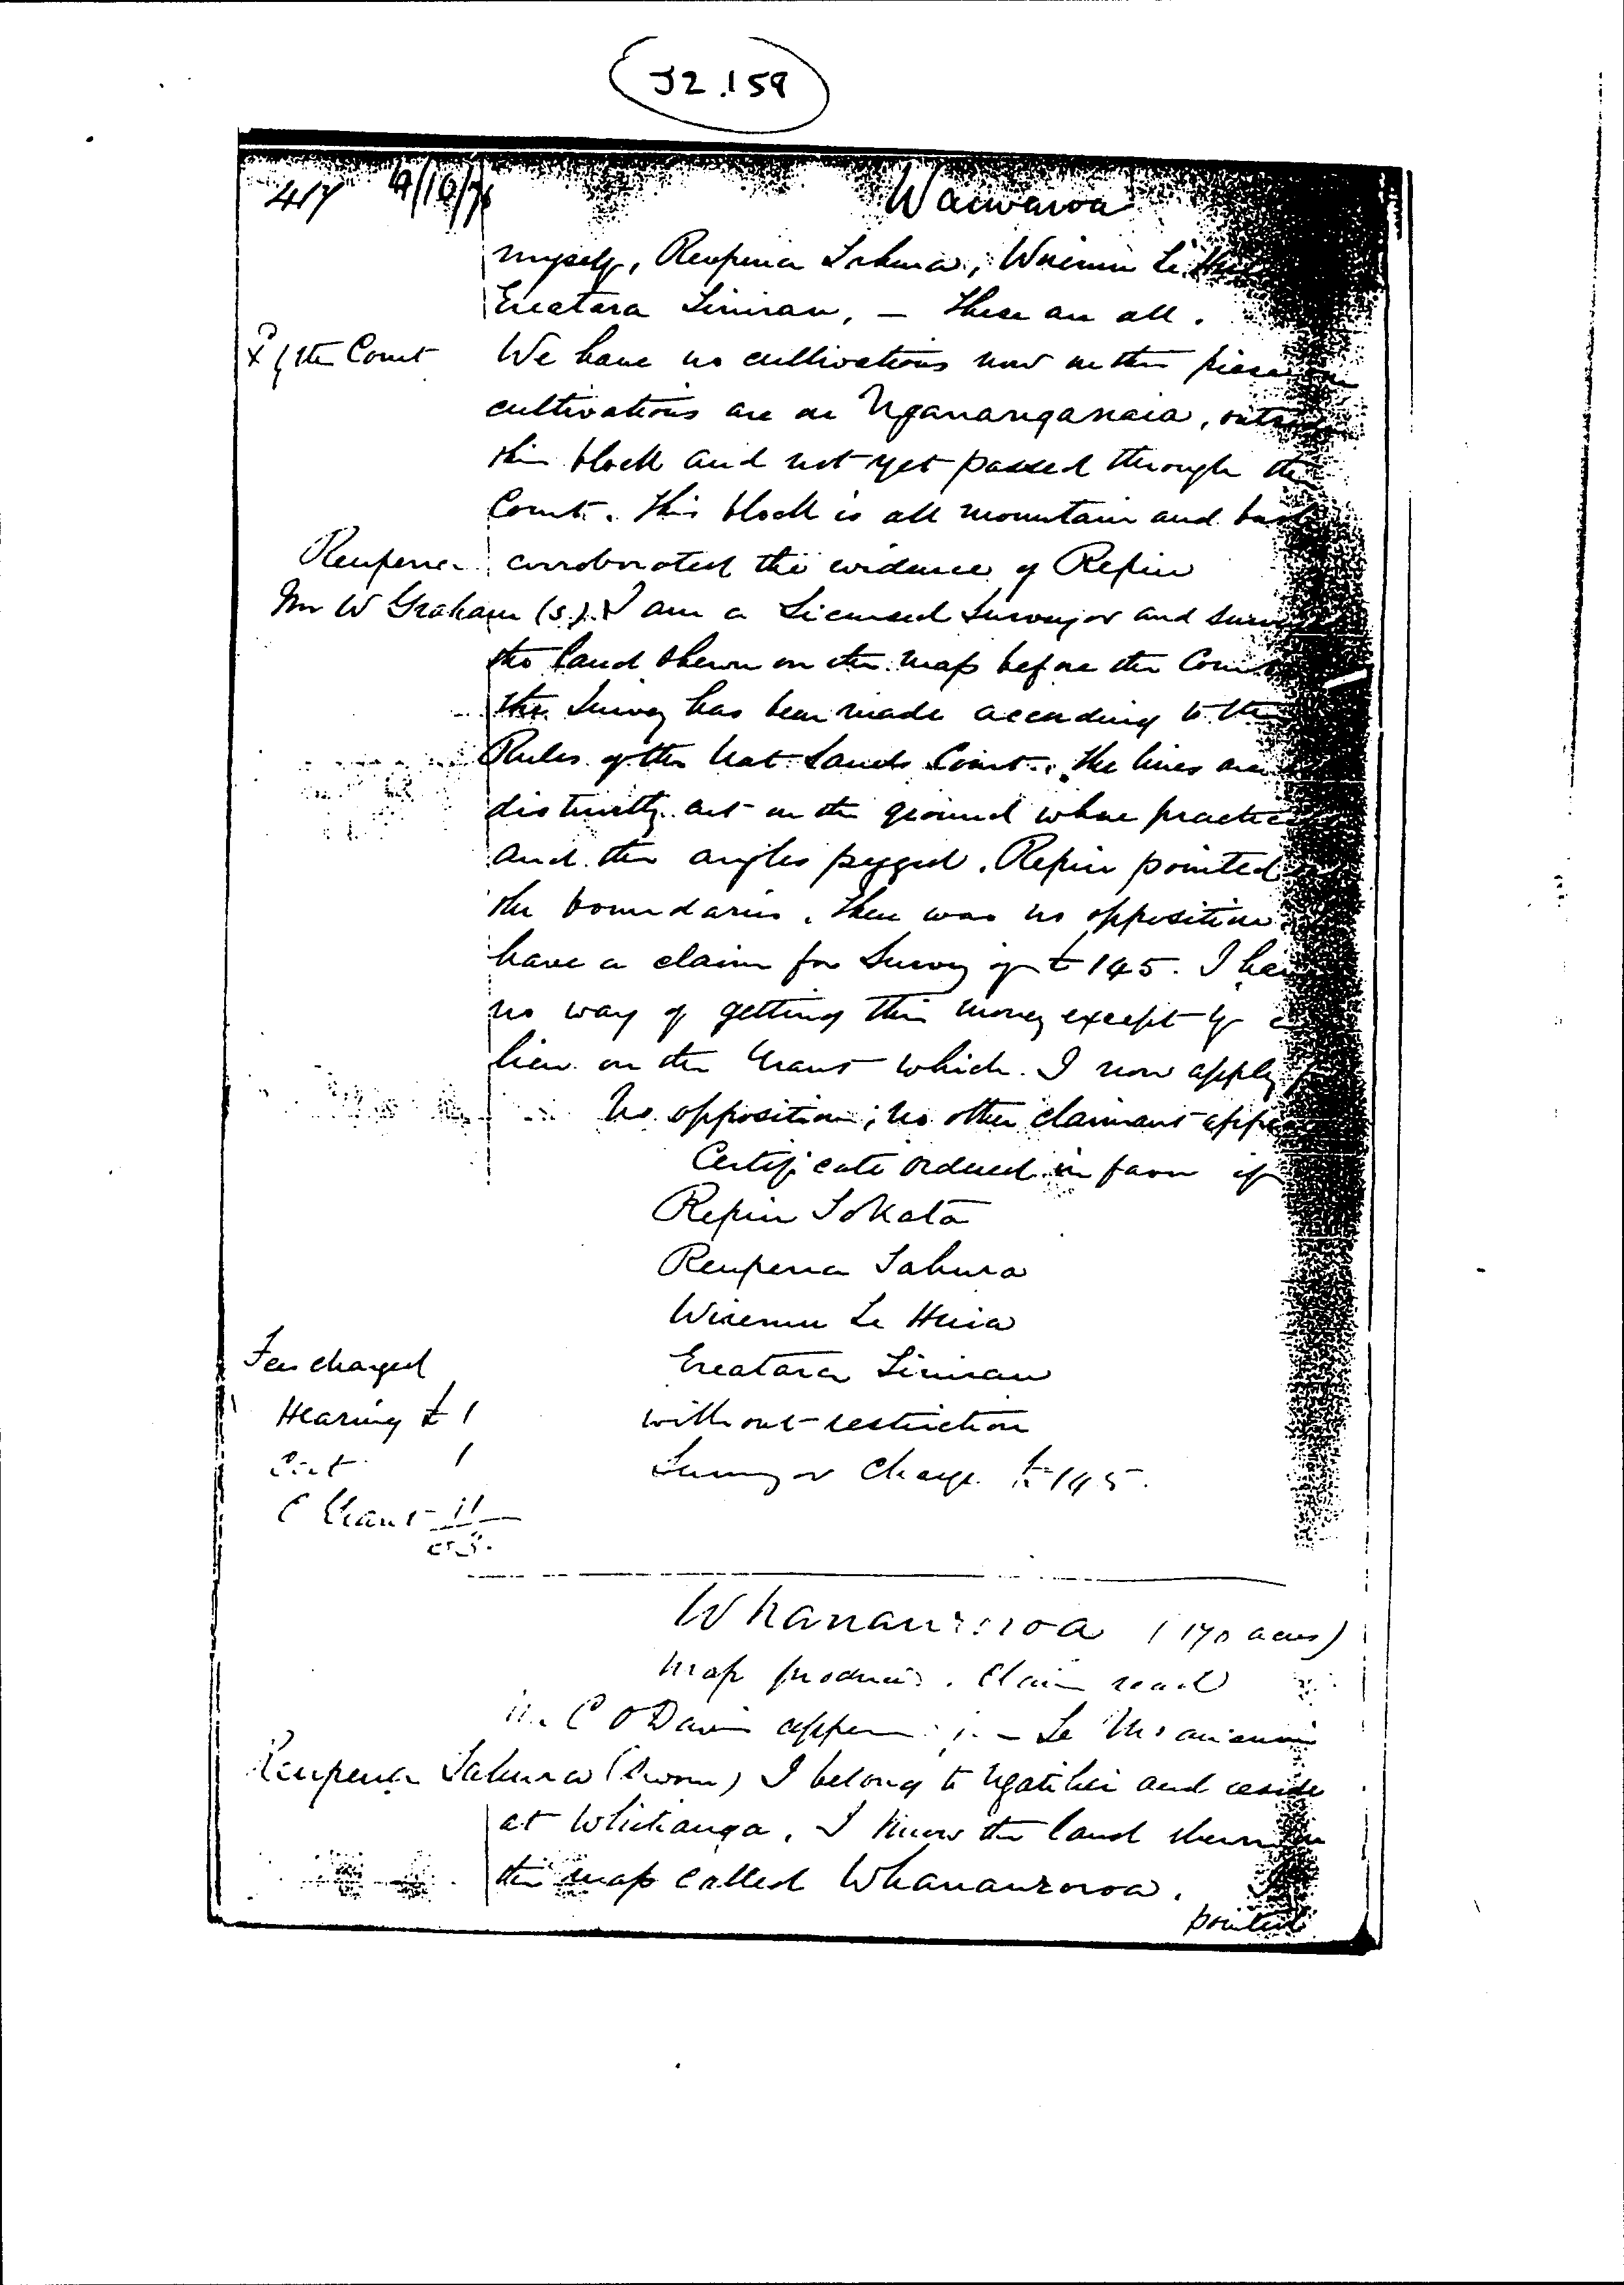 J2.159
417 9/10/7
Waiwawa
myself, Reuperia Tahura, Wiremu Te
Ereatara Tinirau, – these are all.
X by the Court We have no cultivations now on this piece
cultivations are on Nganangana, outside
this block and not yet passed through the
Court. This block is all mountain and bush
Reuperia corroborated the evidence of Repiu
Mr W Graham (S). I am a Licensed Surveyor and
the land shewn on the map before the Court
the Survey has been made according to the
Rules of the Nat. Lands Court. The lines are
distinctly cut on the ground where
and the angles pegged. Repiu pointed
the boundaries. There was no opposition
have a claim for Survey of £145. I have
no way of getting this money except by a
lien on the Grant which I now apply
No opposition; no other claimant
Certificate ordered in favor of
Repiu Tokata
Reuperia Tahura
Wiremu Te Huia
Ereatara Tinirau
without restriction
Surveyor Charge £145.
Fees charged
Hearing £1
Cert 1
C Grant
(170 acres)
Map produced. Claim read
C O Davis
Reuperia Tahura (Sworn) I belong to Ngatihei and reside
at Whitianga. I know the land shewn on
this map called
pointed